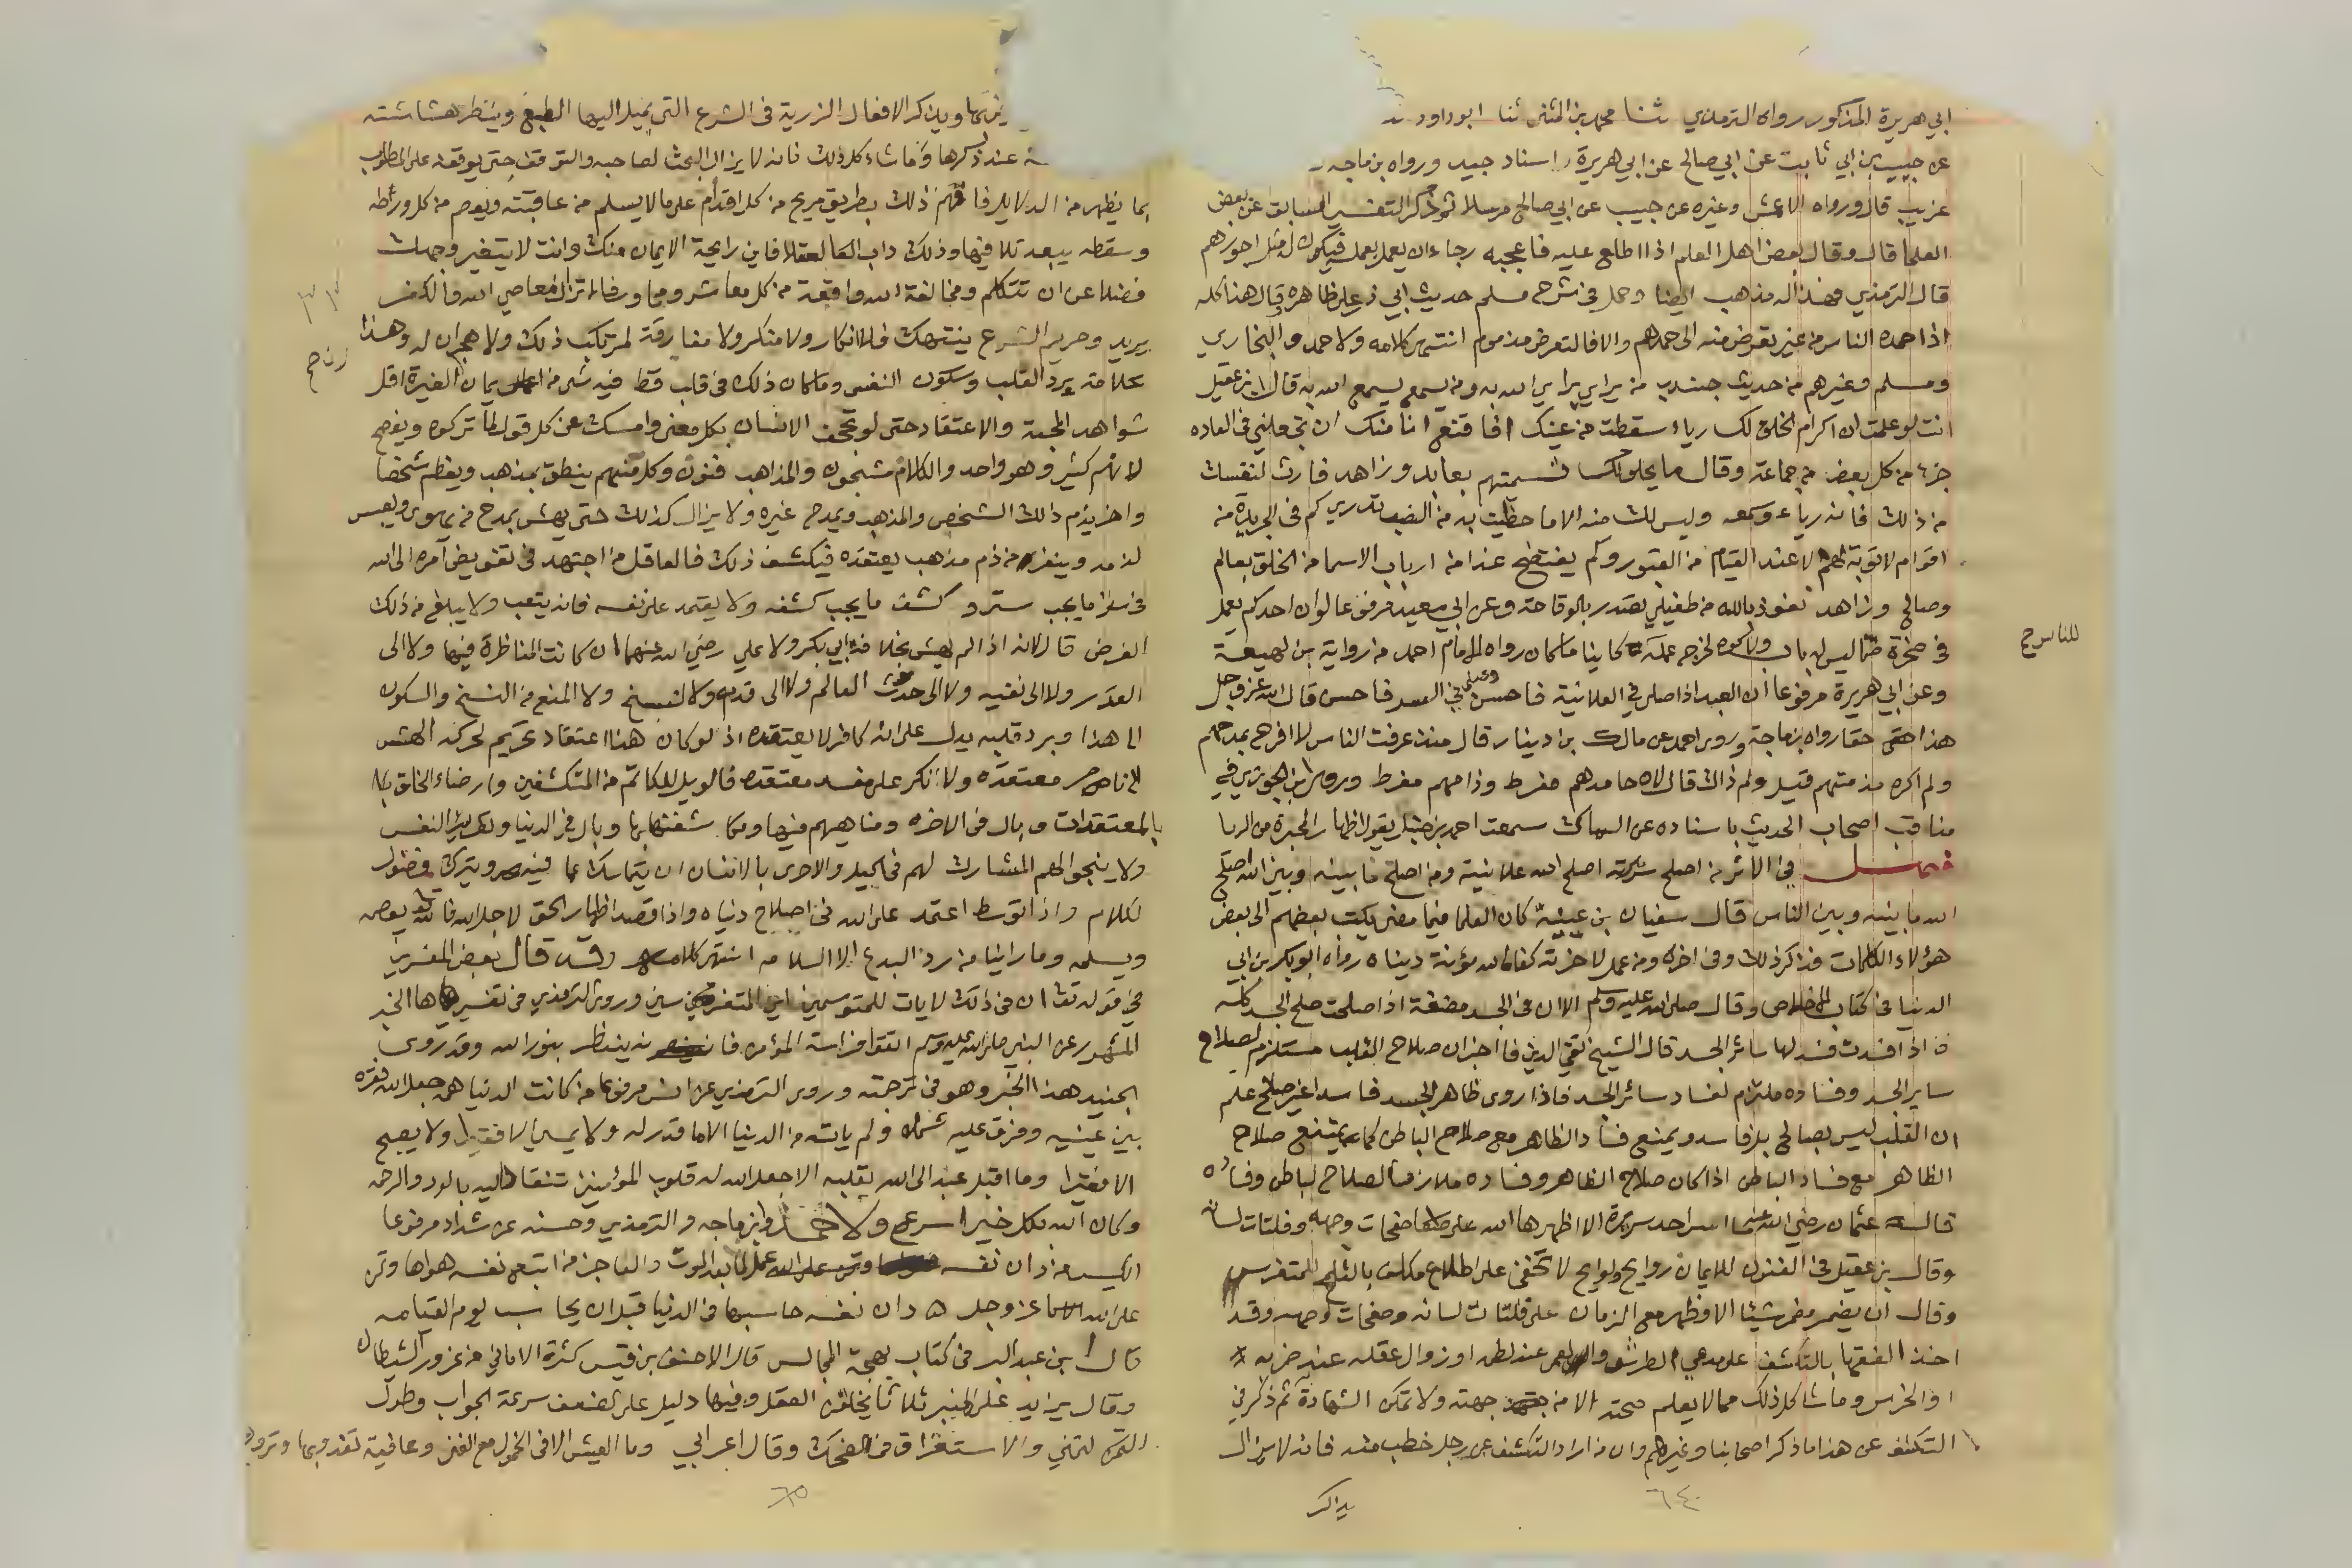 ابي هريرة المذكور رواه الترمذي ثنا محمد بن المثنى ثنا ابو داود
عن حبيب بن ابي ثابت عن ابي صالح عن ابي هريرة اسناد جيد ورواه بن ماجه
غريب قال ورواه الاعمش وغيره عن حبيب عن ابي صالح مرسلا ثم ذكر التفسير السابق عن بعض
العلما قال وقال بعض اهل العلم اذا اطلع عليه فاعجبه رجاء ان يعمل بعمله فيكون له مثل اجورهم
قال الترمذي فهذا له مذهب ايضا وحمل في شرح مسلم حديث ابي ذر على ظاهره قال هذا كله
اذا حمده الناس من غير تعرض منه الى حمدهم والا فالتعرض مذموم انتهى كلامه ولاحمد والبخاري
ومسلم وغيرهم من حديث جندب من يرايي يرايي الله به ومن يسمع يسمع الله به قال ابن عقيل
انت لو علمت ان اكرام الخلق لك رياء سقطت من عينك افاقنع انا منك ان تجعلني في العاده
جزء من كل بعض من جماعة وقال ما يحلو لك تسميتهم بعابد وزاهد فارث لنفسك
من ذلك فانه رياء وسمعه وليس لك منه الا ما حظيت به من الصيت تدري كم في الجريدة من
اقوام لا توبة لهم الا عند القيام من القبور وكم يفتضح غدا من ارباب الاسما من الخلق بعالم
وصالح وزاهد نعوذ بالله من طفيلي تصدر بالوقاحة وعن ابي سعيد مرفوعا لو ان احدكم يعمل
في صخرة صما ليس لها باب ولا كوه لخرج عمله كاينا ما كان رواه الامام احمد من رواية بن لهيعة
وعن ابي هريرة مرفوعا ان العبد اذا صلى في العلانية فاحسن وصلى في السر فاحسن قال الله عز وجل
هذا عبدي حقا رواه بن ماجة وروى احمد عن مالك بن دينار قال منذ عرفت الناس لا افرح بمدحهم
ولم اكره مذمتهم قيل ولم ذاك قال لان حامدهم مفرط وذامهم مفرط وروى ابن الجوزي في
مناقب اصحاب الحديث باسناده عن السماك سمعت احمد بن حنبل يقول اظهار المحبرة من الريا
فصل في الاثر من اصلح سريرته اصلح الله علانيته ومن اصلح ما بينه وبين الله اصلح
الله ما بينه وبين الناس قال سفيان بن عيينة كان العلما فيما مضى يكتب بعضهم الى بعض
هؤلاء الكلمات فذكر ذلك وفي اخره ومن عمل لاخرته كفاه الله مؤنة دنياه رواه ابو بكر بن ابي
الدنيا في كتاب الاخلاص وقال صلى الله عليه وسلم الا ان في الجسد مضغة اذا صلحت صلح الجسد كله
واذا فسدت فسد لها سائر الجسد قال الشيخ تقي الدين فاخبر ان صلاح القلب مستلزم لصلاح
ساير الجسد وفساده ملتزم لفساد سائر الجسد فاذا روى ظاهر الجسد فاسدا غير صالح علم
ان القلب ليس بصالح بل فاسد ويمتنع فساد الظاهر مع صلاح الباطن كما يمتنع صلاح
الظاهر مع فساد الباطن اذا كان صلاح الظاهر وفساده ملازما لصلاح الباطن وفساده
قال عثمان رضي الله عنه ما اسر احد سريرة الا اظهرها الله على صفحات وجهه وفلتات لسانه
وقال بن عقيل في الفنون للايمان روايح ولوايح لا تخفى على اطلاع مكلف بالتلمح للمتفرس
وقال ان يضمر مضمر شيئا الا وظهر مع الزمان على فلتات لسانه وصفحات وجهه وقد
اخذ الفقها بالتكشف على مدعي الطرش والعمى عند لطمه او زوال عقله عند ضربه
او الخرس وما شاكل ذلك مما لا يعلم صحته الا من جهته ولا تمكن الشهادة ثم ذكر في
التكشف عن هذا ما ذكر اصحابنا وغيرهم وان من اراد التكشف عن رجل خطب منه فانه لا يزال
يذاكر
٦٤
للناسخ
ويذكر الافعال الزرية في الشرع التي يميل اليها الطبع وينظر هشاشته
عند ذكرها وما شاء كل ذلك فانه لا يزال البحث لصاحبه والتوقف حتى يوقفه على المطلوب
بما يظهر من الدلايل فافهم ذلك بطريق مريح من كل اقدام على ما لا يسلم من عاقبته ويعصم من كل ورطه
وسقطه يبعد تلافيها وذلك داب العقلا فاين رايحة الايمان منك وانت لا يتغير وجهك
فضلا عن ان تتكلم ومخالفة الله واقعة من كل معاشر ومجاور فلا تزال معاصي الله والكفر
يزيد وحريم الشرع ينتهك فلا انكار ولا منكر ولا مفارقة لمرتكب ذلك ولا هجران له وهذا
علامة برد القلب وسكون النفس وما كان ذلك في قلب قط فيه شيء من ايمان الغيرة اقل
شواهد المحبة والاعتقاد حتى لو تحجف الانسان بكل معنى وامسك عن كل قول لما تركوه ويفصح
لانهم كثير وهو واحد والكلام شجون والمذاهب فنون وكل منهم ينطق بمذهب ويعظم شخصا
واخر يذم ذلك الشخص والمذهب ويمدح غيره ولا يزال كذلك حتى يهش بمدح من يهوى ويعبس
لذمه وينفر من ذم مذهب يعتقده فيكشف ذلك فالعاقل من اجتهد في تفويض امره الى الله
في ستر ما يجب ستره وكشف ما يجب كشفه ولا يعتمد على نفسه فانه يتعب ولا يبلغ من ذلك
الغرض قال لانه اذا لم يهش بخلافة ابي بكر ولا علي رضي الله عنهما ان كانت المناظرة فيها ولا الى
القدر ولا الى نفيه ولا الى حدث العالم ولا الى قدمه ولا النسخ ولا المنع من النسخ والسكون
الى هذا وبرد قلبه يدل على انه كافر لا يعتقده اذ لو كان هذا اعتقاد تحريم لحركه الهش
الى ناصر معتقده ولانكر على مفسد معتقده فالويل للكاتم من المتكشفين وارضاء الخلق بالمعتقدات
وبال في الاخرة ومناهيهم فيها ومكاشفتها بها وبال في الدنيا وتغرير بالنفس
ولا ينجو الهم المشارك لهم في الحيل والاحرى بالانسان ان يتماسك عما فيه ويترك فضول
الكلام واذا توسط اعتمد على الله في اصلاح دنياه واذا قصد اظهار الحق لاجل الله فالله يعصمه
ويسلمه وما راينا من رد البدع الا السلامه انتهى كلامه وقد قال بعض المفسرين
في قوله تعالى ان في ذلك لايات للمتوسمين اي المتفرسين وروى الترمذي في تفسيرها الخبر
المشهور عن النبي صلى الله عليه وسلم اتقوا فراسة المؤمن فانه ينظر بنور الله وقد روى
الجنيد هذا الخبر وهو في ترجمته وروى الترمذي عن انس مرفوعا من كانت الدنيا همه جعل الله فقره
بين عينيه وفرق عليه شمله ولم ياته من الدنيا الا ما قدر له ولا يمسي الا فقيرا ولا يصبح
الا فقيرا وما اقبل عبد الى الله بقلبه الا جعل الله له قلوب المؤمنين تنقاد اليه بالود والرحمه
وكان الله بكل خير اسرع ولاحمد وابن ماجه والترمذي وحسنه عن شداد مرفوعا
الكيس من دان نفسه وعمل لما بعد الموت والعاجز من اتبع نفسه هواها وتمنى
على الله عز وجل دان نفسه حاسبها في الدنيا قبل ان يحاسب يوم القيامه
قال ابن عبد البر في كتاب بهجة المجالس قال الاحنف بن قيس كثرة الاماني من غرور الشيطان
وقال يزيد على المنبر ثلاث يخلقن العقل وفيها دليل على الضعف سرعة الجواب وطول
التمني والاستغراق في الضحك وقال اعرابي وما العيش الا في الخمول مع الغنى وعافية تغدو بها وتروح
٦٥